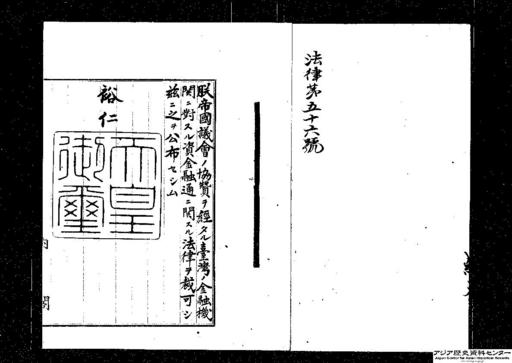 法律第五十六號
朕帝國議會ノ協贊ヲ經タル臺灣ノ金融機
關ニ對スル資金融通ニ關スル法律ヲ裁可シ
茲ニ之ヲ公布セシム
裕仁
天皇
御璽
内閣
アジア歴史資料センター
Japan Center for Asian Historical Records